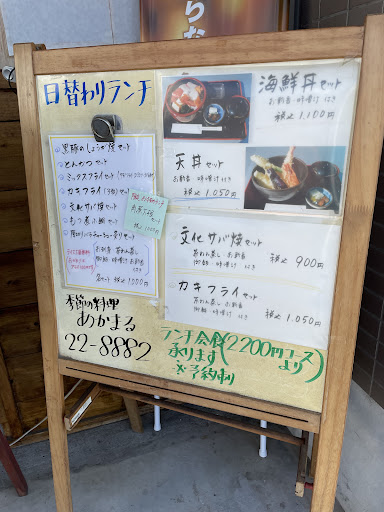 らな
日替わりランチ
黒豚のしょうが焼セット
とんかつセット
ミックスフライセット
カキフライ(3個)セット
文化サバ焼セット
もつ煮小鍋セット
お新香 茶わん蒸し
御飯 味噌汁 付き
各セット 税込1000円
税込1000円
季節の料理
あかまる
22-8882
海鮮丼セット
お新香・味噌汁付き
税込 1,100円
天丼セット
お新香・味噌汁付き
税込 1,050円
文化サバ焼セット
茶わん蒸し お新香
御飯 味噌汁 付き
税込 900円
カキフライセット
茶わん蒸し お新香
御飯 味噌汁 付き
税込 1,050円
ランチ会食(2200円コースより)
承ります
※予約制